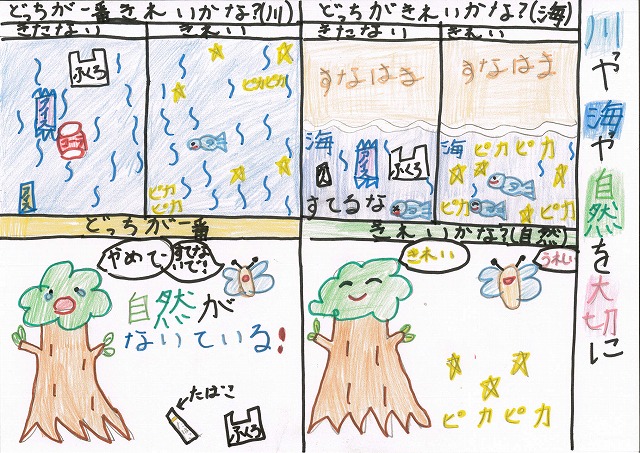 川や海や自然を大切に
どっちが一番きれいかな?(川)
きたない
きれい
ふくろ
アイス
ピカピカ
ピカ
ピカ
どっちがきれいかな?(海)
きたない
きれい
すなはま
すなはま
海
アイス
ふくろ
すてるな
海
ピカピカ
ピカ
ピカ
どっちが一番
きれいかな?(自然)
やめてー
すてないで!
自然が
ないている!
たばこ
ふくろ
きれい
うれしい
ピカピカ